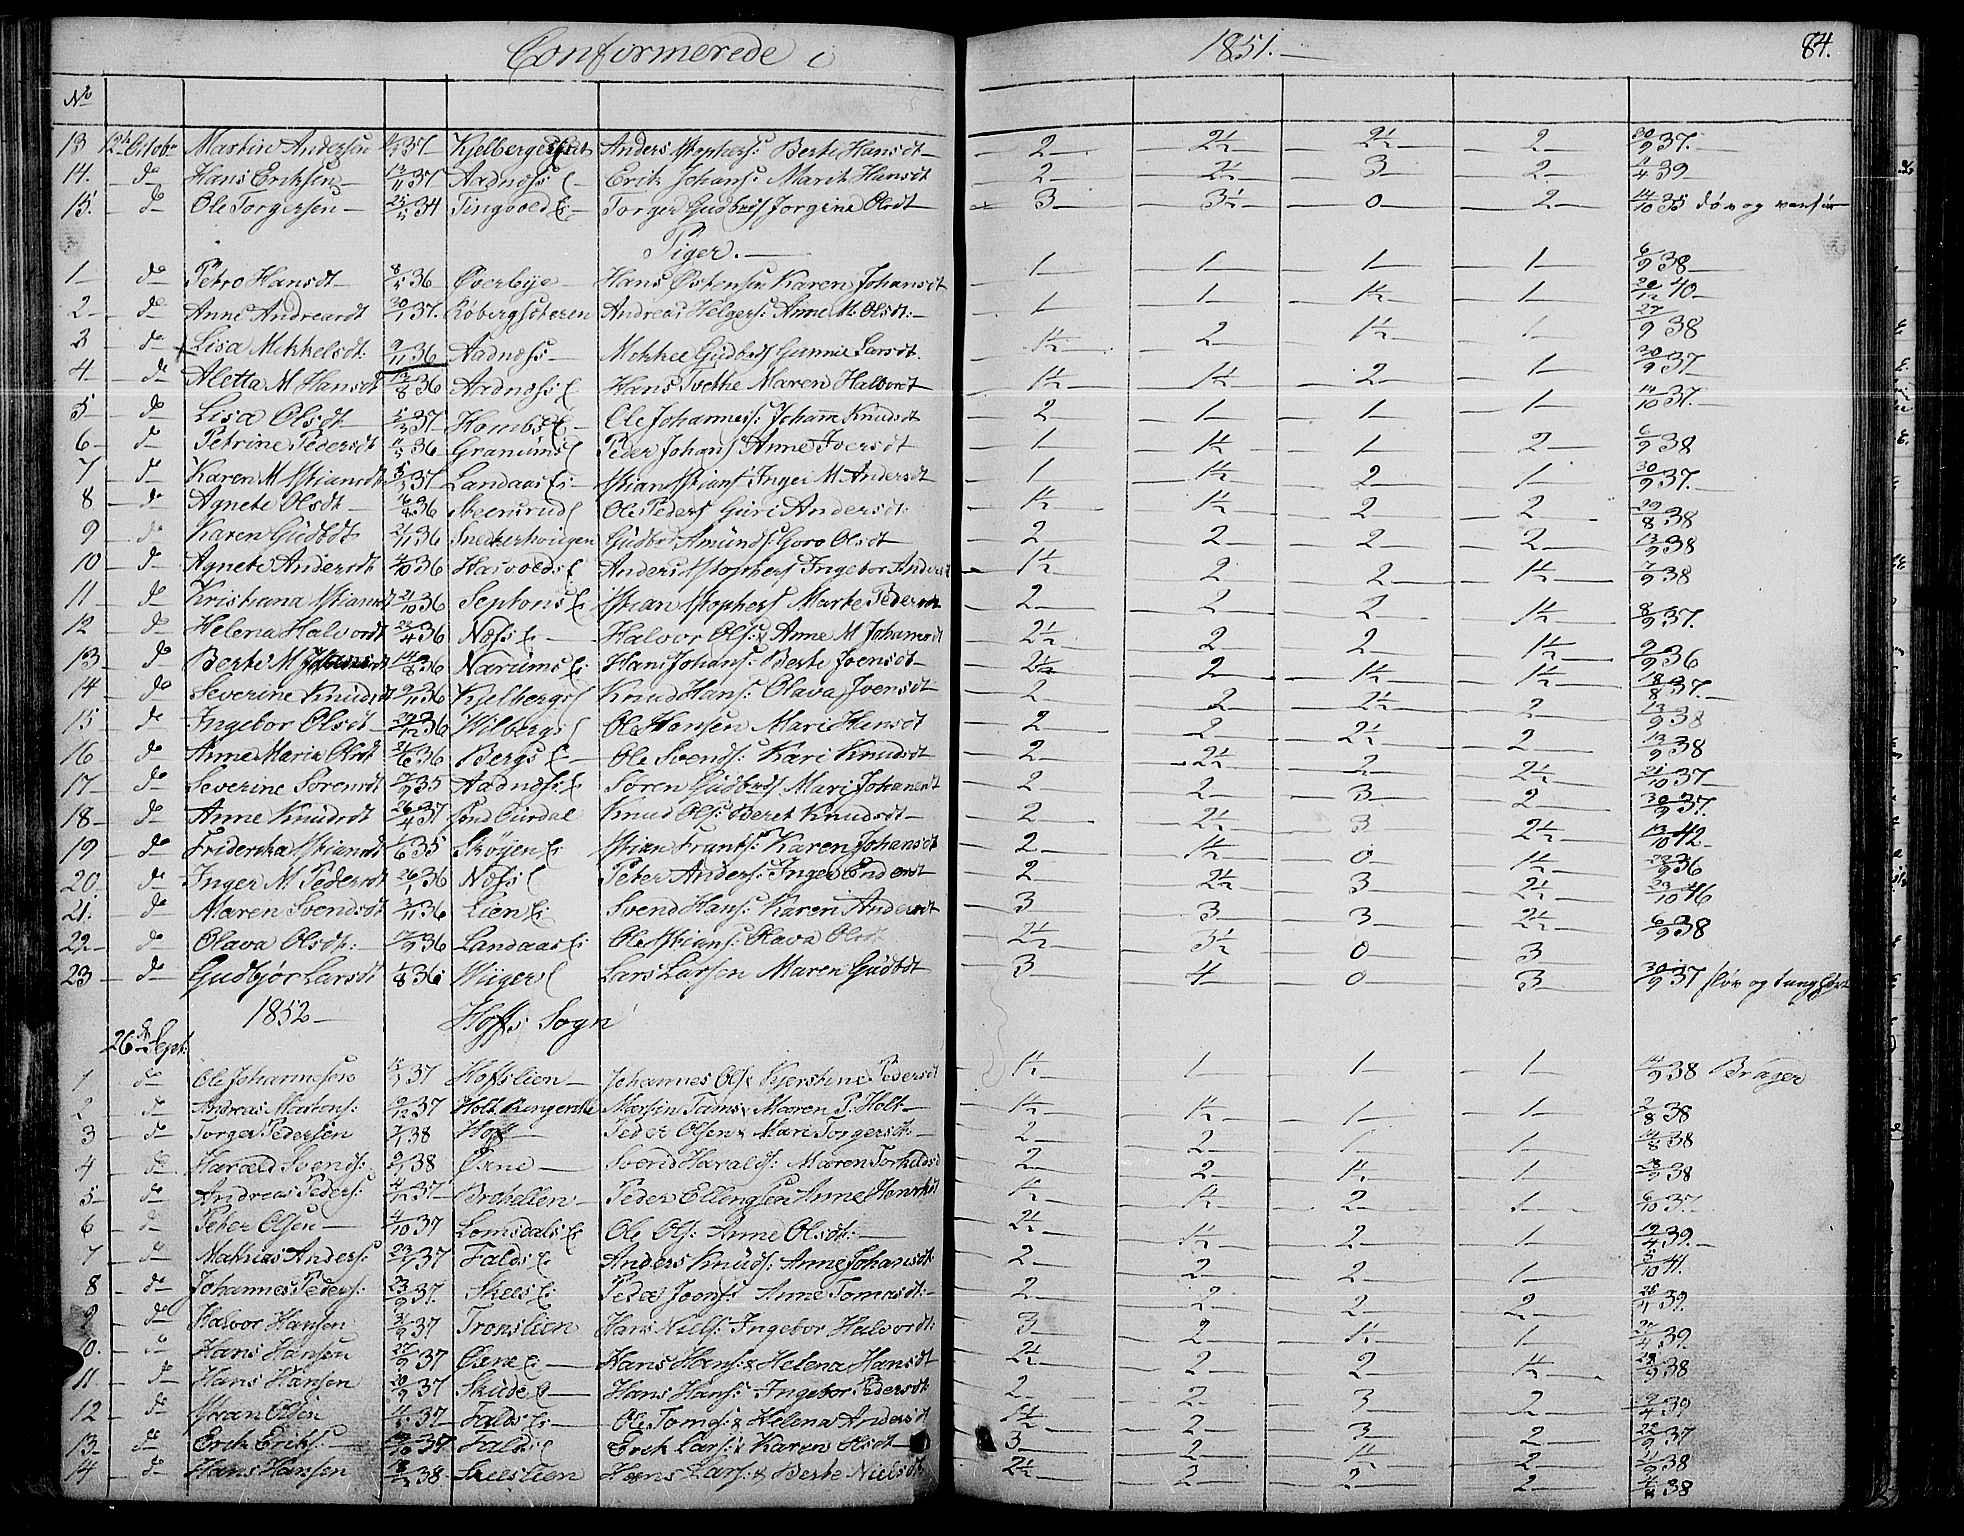 Confirmerede i 1851. 84.
No
13 12te Octobr Martin Andersen 37 Kjelbergseiet Anders Stophers: Berte Hansdt 2 2½ 2½ 2 30/9 37.
14. do Hans Eriksen 13/11 37 Aadnæss E Erik Johans: Marit Hansdt 2 2½ 3 2 4/4 39
15. do Ole Torgersen 25/5 34 Tingvold Ei Torger Gudbrs Jorgine Olsdt 3 3½ 0 2 14/10 35 døv og vanfør
Piger.
1 do Petro Hansdt 8/5 36 Øverbye Hans Østensen Karen Johansdt 1 1 1 1 6/9 38
2 do Anne Andreasdt 30/1 37. Købergseteren Andreas Helgers: Anne M. Olsdt: 1 1 1½ 1 20/12 40
3 do Lisa Mikkelsdt: 9/11 36 Aadnæss Mikkel Gudbrs Gunnil Larsdt. 1½ 2 1½ 1 27/9 38
4 do Aletta M Hansdt 12/8 36 Aadnæss E Hans Maren Halvordt 1½ 1½ 2 1 30/9 37
5 do Lisa Olsdt 5/3 37 Hombs E Ole Johanness: Johann Knudsdt 2 1 1 1 14/10 37.
6 do Petrine Pedersdt 11/5 36 Granums E Peder Johans Anne Iversdt 1 1½ 1 2 6/9 38
7 do Karen M Stiansdt 37 Landaas Ei Stian Stians Inger M Andersdt 1 1½ 2 1 30/9 37.
8 do Agnete Olsdt 16/8 36 Ole Peders Guri Andersdt: 1½ 1½ 2 2 29/8 38
9 do Karen Gudbdt 21/11 36 Snekkerhougen Gudbr Amunds Goro Olsdt 2 2 2 2 13/9 38
10 do Agnete Andersdt 4/10 36 Hasvolds E Anders Stophers Ingebor Anders 1½ 2 2 1½ 7/9 38
11 do Kristiana Stiansdt 21/10 36 Septons E Stian Stophers Marte Pedersdt 2 2 2 1½ 8/9 37.
12 do Helena Halvordt 23/4 36 Næss E Halvor Ols: & Anne M Johansdt 2½ 2 2 1½ 2/9 36
13 do Berte M 14/8 36 Narums Ei Hans Johans: Berte Joensdt 2½ 2 1½ 1½ 18/8 37.
14 do Severine Knudsdt 9/11 36 Kjelbergs E Knud Hans: Olava Joensdt 2 2 2½ 2 13/9 38
15 do Ingebor Olsdt 29/12 36 Wilbergs E Ole Hansen Mari Hansdt 2 2 2½ 2 13/9 38
16 do Anne Maria Olsdt 21/6 36 Bergs E Ole Svends: Kari Knudsdt 2 2½ 2 2½ 21/10 37
17 do Severine Sørensdt 17/9 35 Aadnæss E Søren Gudbrs Mari Johanesdt 2 2 3 2 30/9 37.
18 do Anne Knudsdt 26/4 37 Knud Ols: Beret Knudsdt 2 2½ 3 2½ 13/10 42
19 do Friderika Stiansdt 1/6 35 Skøyen E Stian Frants: Karen Johansdt 2 1½ 0 1½ 36
20. do Inger M. Pedersdt 26/1 36 Næss E Peter Anders: Inger Endersdt 2 2½ 3 2½ 23/10 46
21. do Maren Svendsdt 3/11 36 Lien E Svend Hans: Karen Andersdt 3 3 3 2½ 6/9 38
22 do Olava Olsdt: 17/9 36 Landaas E Ole Stians: Olava Olsdt 2½ 3½ 0 3
23 do Gudbjør Larsdt 1/8 36 Wiigers E Lars Larsen Maren Gudbdt 3 4 0 3 30/9 37 sløv og tunghørt
1852 Hoffs Sogn
26de Sept:
1 do Ole Johannesen 37 Hoffslien Johannes Ols & Kjerstine Pedersdt 1½ 1 1 1 14/9 38 Brager
2 do Andreas Martens: 9/12 37 Holt Martin Tams & Maren P. Holt 1½ 1½ 1 1 2/8 38
3 do Torger Pedersen 7/1 38 Hoff Peder Olsen & Mari Torgersdt: 2 2 1 1 14/8 38
4 do Harald Svends: 9/1 38 Øsne Svend Haralds: Maren Torkildsd 2 2 1½ 1 28/9 38
5 do Andreas Peders: 4/12 37 Brohellen Peder Ellingsen Anne Henrikdt 1½ 1½ 2 1 6/10 37.
6 do Peter Olsen 4/10 37 Lomsdals E Ole Ols: Anne Olsdt: 2½ 1½ 2 1 19/4 39.
7 do Mathias Anders: 37 Falds E Anders Knuds: Anne Johansdt 2 2 2 1 5/10 41.
8 do Johannes Peders: 23/9 37. Skees E Peder Joens: Anne Tomasdt: 2 2 2 2 39.
9 do Halvor Hansen 3/9 37 Tronslien Hans Niels: Ingebor Halvordt: 3 2 1½ 1 27/4 39.
10. do Hans Hansen 27/9 37 Øsne E Hans Hans: & Helena Hansdt 2½ 2 2 1½ 38
11 do Hans Hansen 20/9 37 Skude E Hans Hans: Ingebor Pedersdt: 2 2 3 2 9/4 39
12 do Stian Olsen 37 Falds E Ole Toms: & Helena Andersdt 1½ 2 3 2 22/9 37
13. do Erik Eriks: 37 Falds E Erik Lars: & Karen Olsdt 3 2 1½ 2 38
14 do Hans Hansen 38. Skeeslien Hans Lars: & Berte Nielsdt: 2½ 2 2 2 38